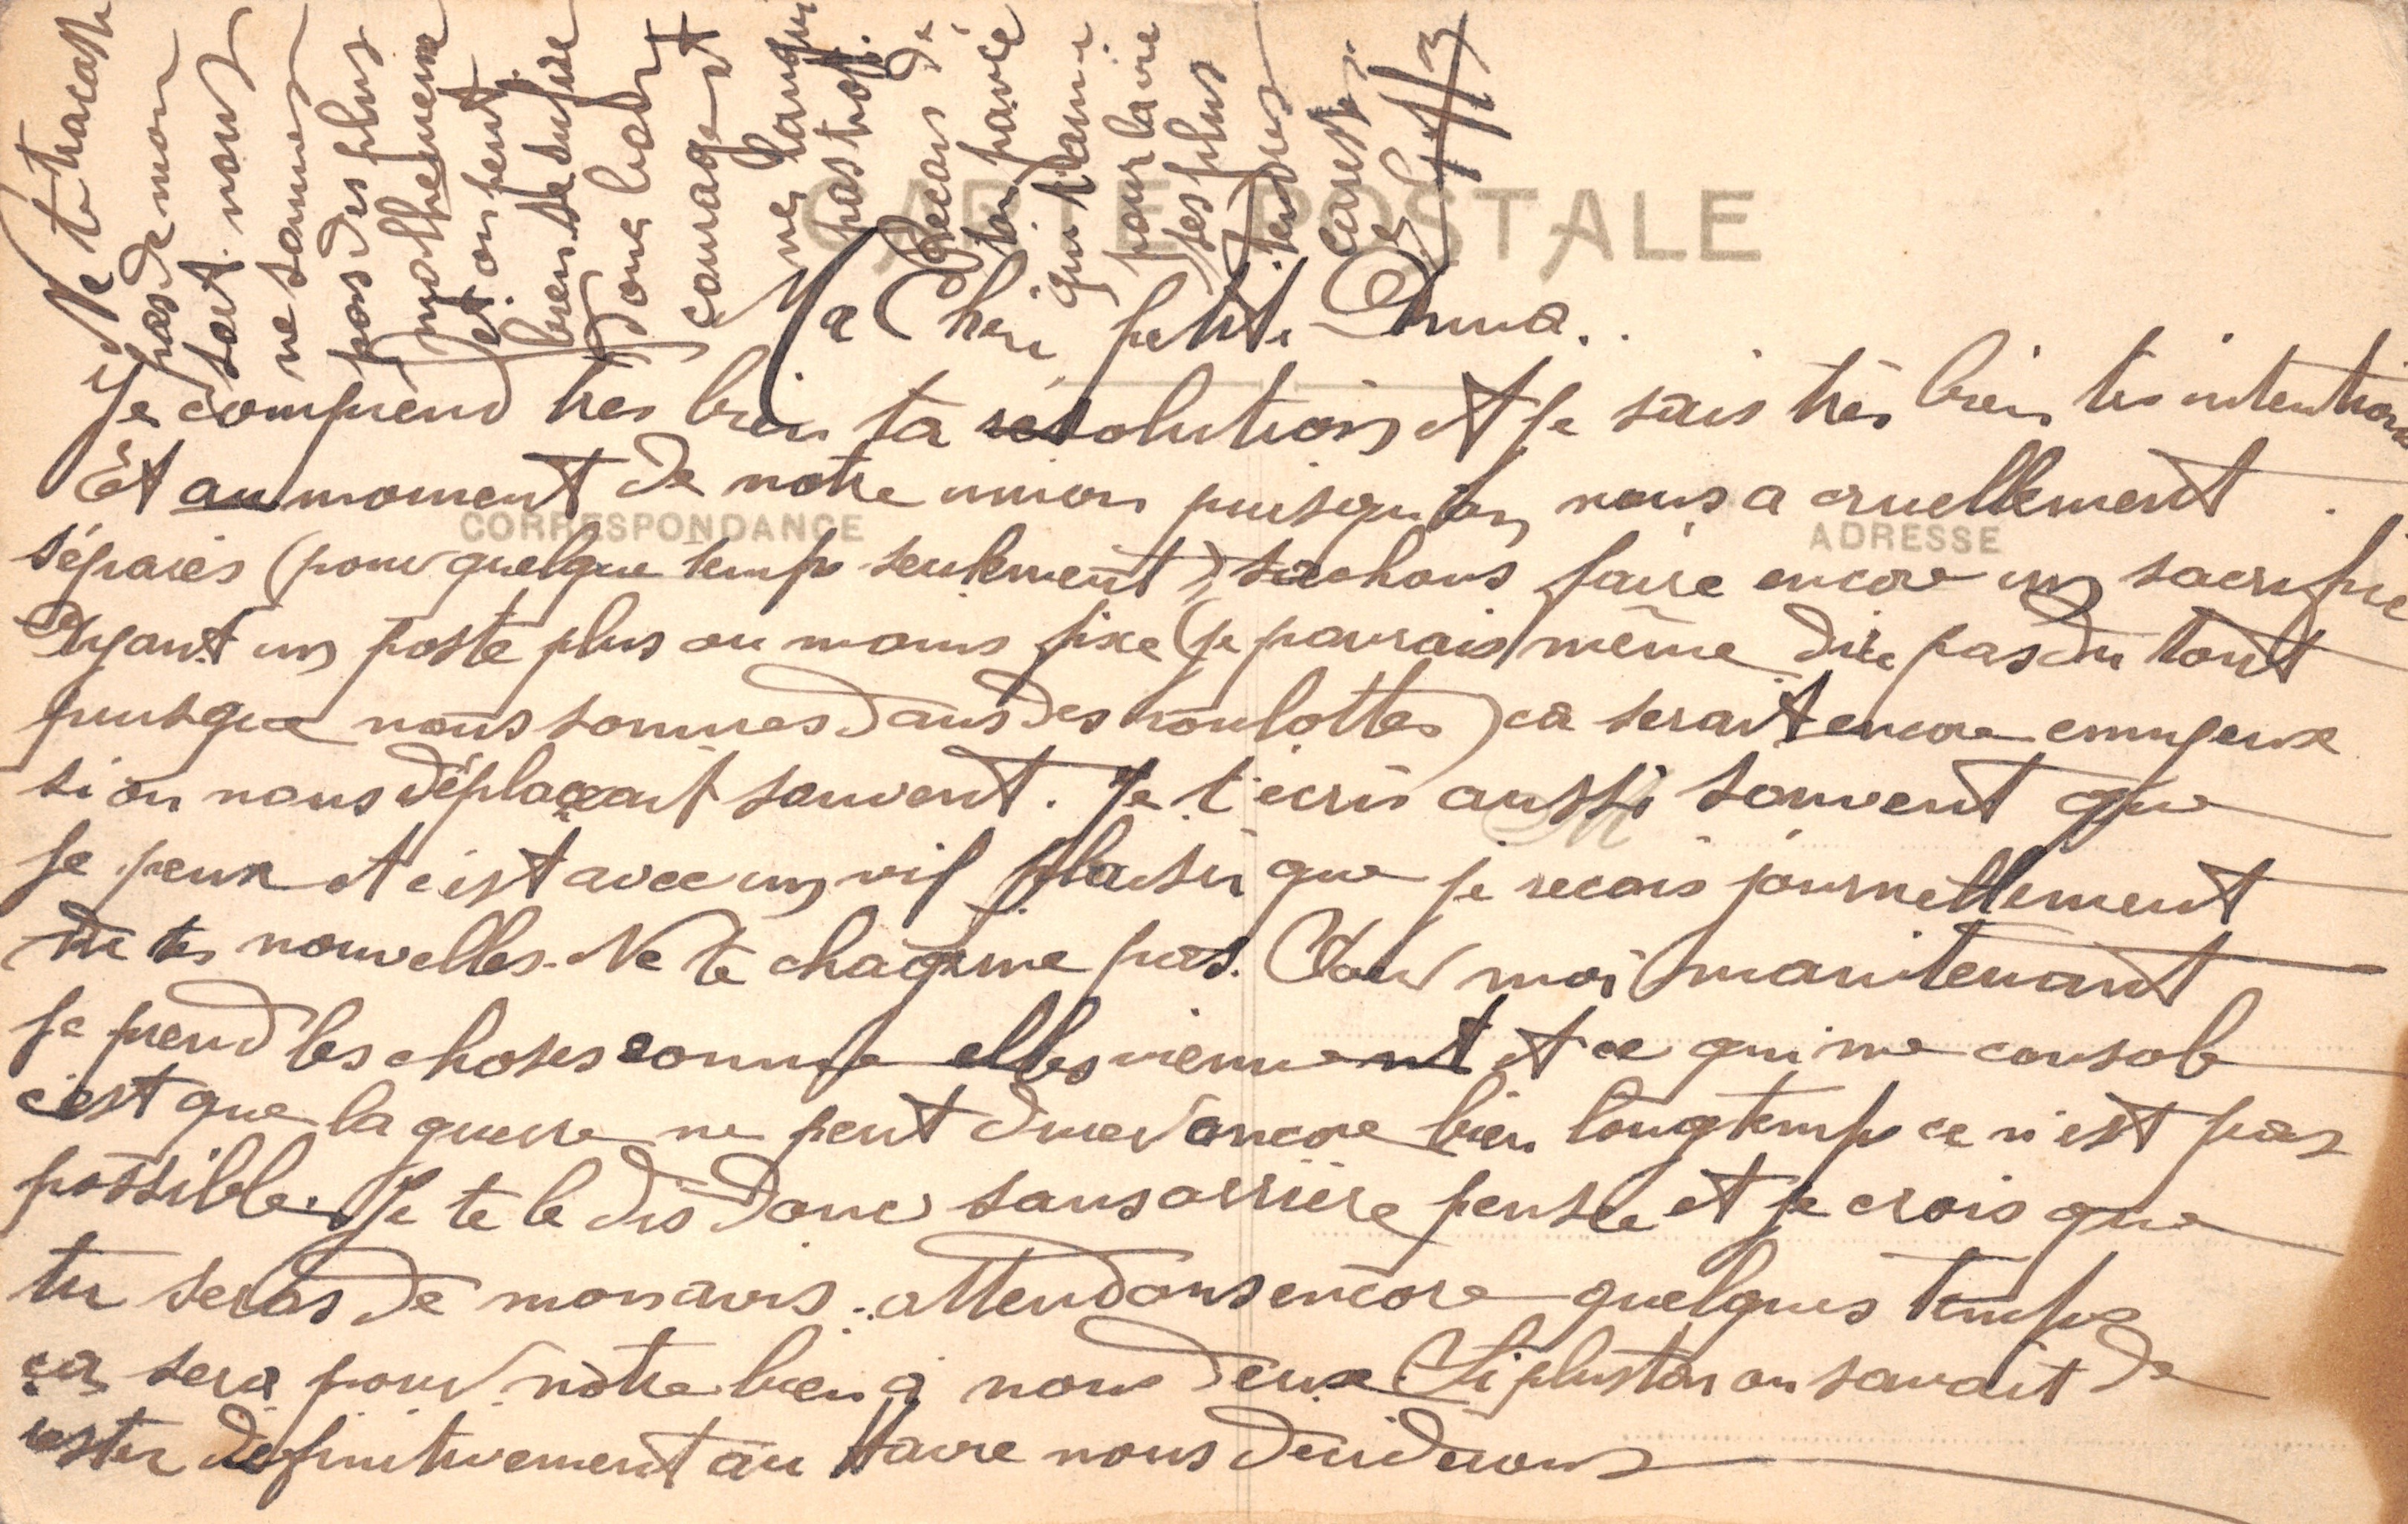 CARTE POSTALE
CORRESPONDANCE
ADRESSE
Ma Cheri petite Anna..
Je comprend tres bien ta résolution et je sais très bien tes intentions
Et au moment de notre union puisqu'on nous a cruellement
séparés (pour quelque temps seulement) sachons faire encore un sacrifice
Ayant un poste plus ou moins fixe (je pourrais même dire pas du tout
puisque nous sommes dans des roulottes) ca serait encore ennuyeux
si on nous déplaçait souvent. Je t'ecris aussi souvent que
je peux et c'est avec un vif plaisir que je recois journellement
de tes nouvelles. Ne te chagrine pas. Pour moi maintenant
je prend les choses comme elles viennent et ce qui me console
c'est que la guerre ne peut durer encore bien longtemps ce n'est pas
possible. Je te le dis donc sans arrière pensée et je crois que
tu seras de mon avis. attendons encore quelques temps
ça sera pour notre bien à nous deux. Si plus tar on savait de
rester définitivement au Havre nous déciderons
Ne te tracasse
pas de mon
sort. nous
ne sommes
pas des plus
malheureux
et on peut
bien se suffire
Donc bon
courage et
ne languis
pas trop.
Recois de
ton pauvre
qui t'aime
pour la vie
ses plus
tendres
caresses